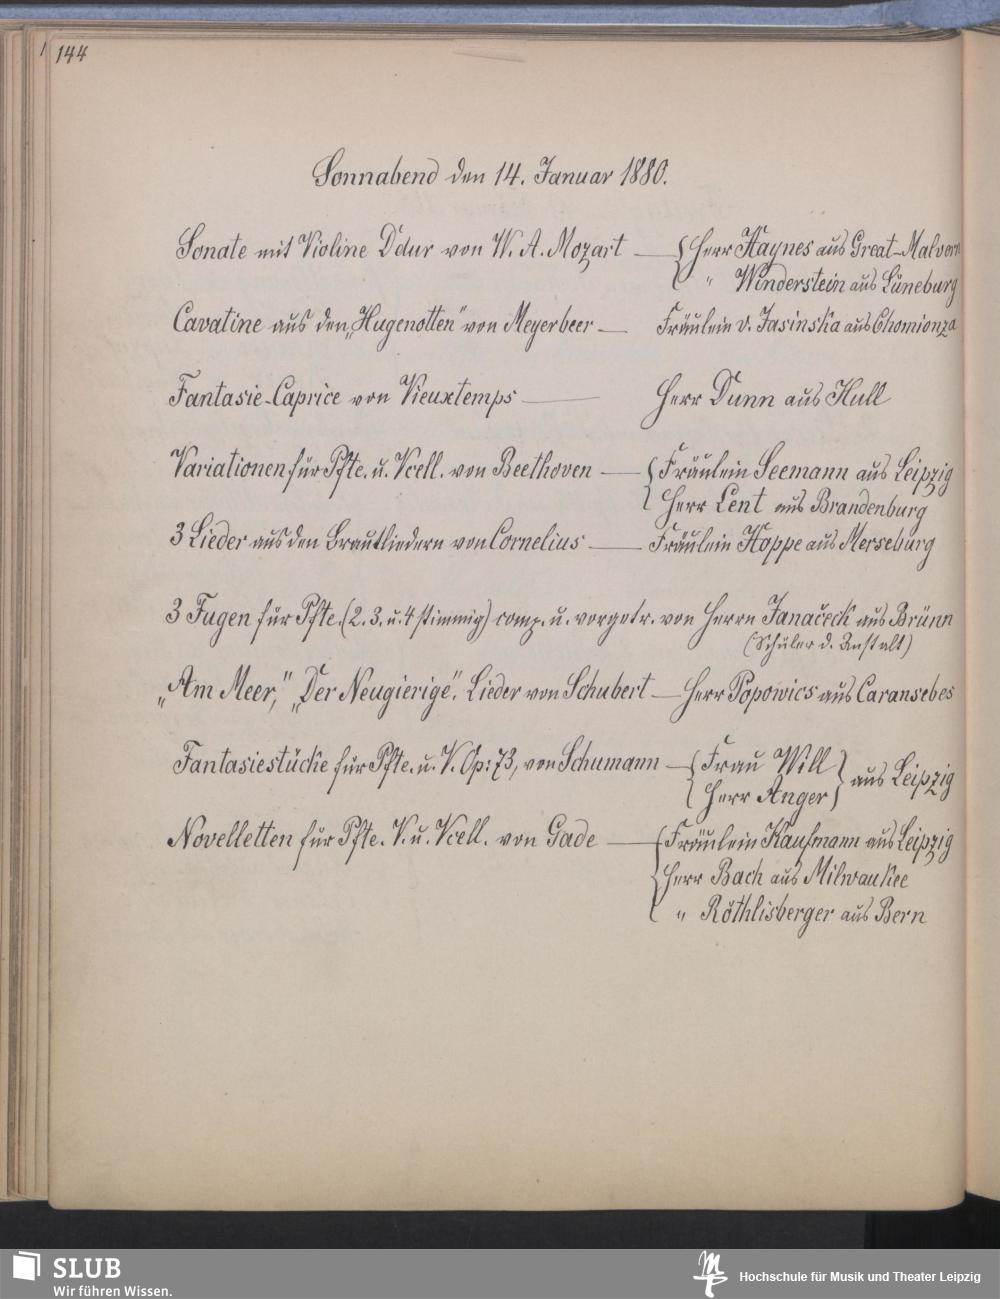 144
Sonnabend den 14. Januar 1880.
Sonate mit Violine Ddur von W. A. Mozart — { Herr Haynes aus Great-Malvern
" Winderstein aus Lüneburg
Cavatine aus den „Hugenotten" von Meyerbeer — Fräulein v. Jasinska aus Chomionza
Fantasie-Caprice von Vieuxtemps — Herr Dunn aus Hull
Variationen für Pfte. u. Vcell. von Beethoven — { Fräulein Seemann aus Leipzig
Herr Lent aus Brandenburg
3 Lieder aus den Brautliedern von Cornelius — Fräulein Hoppe aus Merseburg
3 Fugen für Pfte. (2. 3. u. 4 stimmig) comp. u. vorgetr. von Herrn Janaček aus Brünn
(Schüler d. Anstalt)
„Am Meer," „Der Neugierige". Lieder von Schubert — Herr Popowics aus Caransebes
Fantasiestücke für Pfte. u. V. Op: 73, von Schumann — { Frau Will } aus Leipzig
{ Herr Anger }
Novelletten für Pfte. V. u. Vcell. von Gade — { Fräulein Kaufmann aus Leipzig
Herr Bach aus Milwaukee
" Röthlisberger aus Bern
SLUB
Wir führen Wissen.
Hochschule für Musik und Theater Leipzig